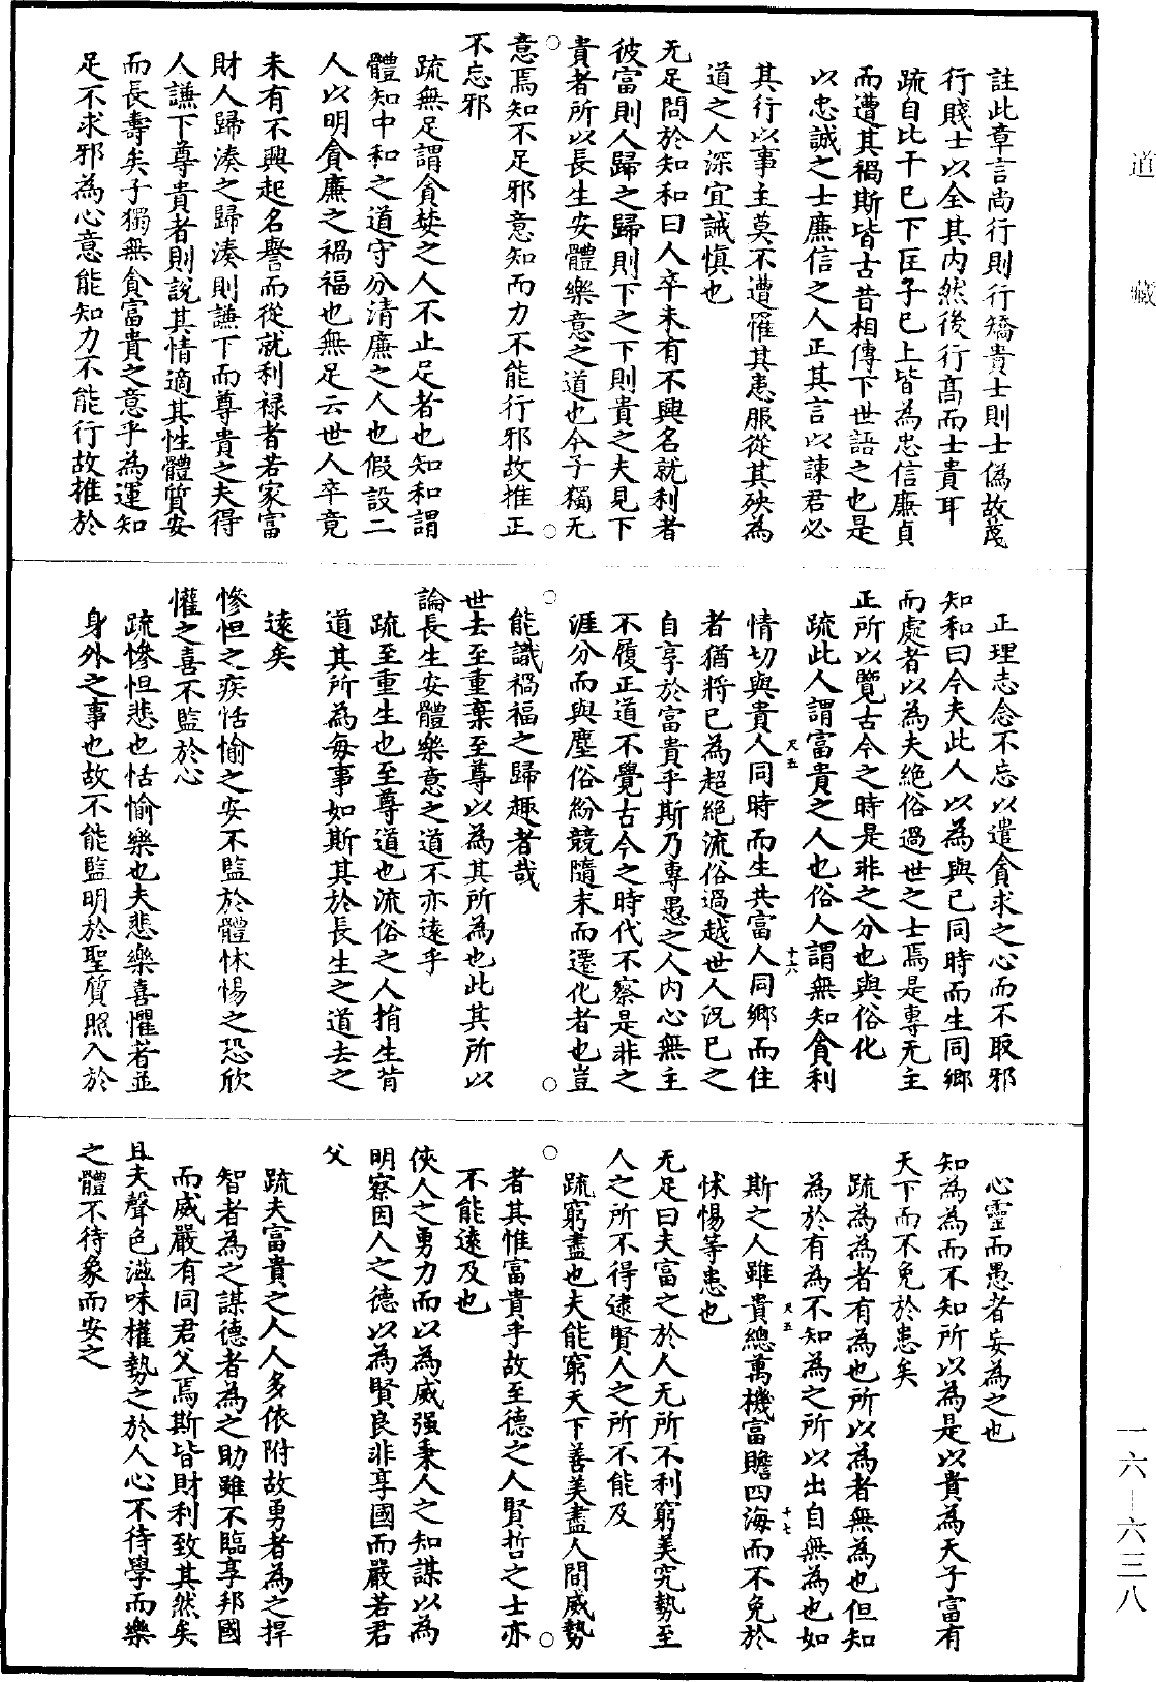 道藏
註此章言尚行則行矯貴士則士偽故蔑
行賤士以全其内然後行髙而士貴耳
疏自比干巳下匡子巳上皆為忠信廉貞
而遭其禍斯皆古昔相傳下世語之也是
以忠誠之士廉信之人正其言以諫君必
其行以事主莫不遭罹其患服從其殃為
道之人深宜誠慎也
无足問於知和曰人卒未有不興名就利者
彼富則人歸之歸則下之下則貴之夫見下
貴者所以長生安體樂意之道也今子獨无
意焉知不足邪意知而力不能行邪故推正
不忘邪
疏無足謂貪婪之人不止足者也知和謂
體知中和之道守分清廉之人也假設二
人以明貪廉之禍福也無足云世人卒竟
未有不興起名譽而從就利禄者若家富
財人歸湊之歸湊則謙下而尊貴之夫得
人謙下尊貴者則說其情適其性體質安
而長壽矣子獨無貪富貴之意乎為運知
足不求邪為心意能知力不能行故推於
正理志念不忘以遣貪求之心而不取邪
知和曰今夫此人以為與己同時而生同鄉
而處者以為夫絶俗過世之士焉是專无主
正所以覽古今之時是非之分也與俗化
疏此人謂富貴之人也俗人謂無知貪利
尺五
十六
情切與貴人同時而生共富人同鄉而住
者猶將己為超絶流俗過越世人況己之
自享於富貴乎斯乃專愚之人内心無主
不履正道不覺古今之時代不察是非之
涯分而與塵俗紛競隨末而遷化者也豈
能識禍福之歸趣者哉
世去至重棄至尊以為其所為也此其所以
論長生安體樂意之道不亦遠乎
疏至重生也至尊道也流俗之人捐生背
道其所為每事如斯其於長生之道去之
遠矣
慘怛之疾恬愉之安不監於體怵惕之恐欣
懽之喜不監於心
疏慘怛悲也恬愉樂也夫悲樂喜懼者並
身外之事也故不能監明於聖質照入於
心靈而愚者妄為之也
知為為而不知所以為是以貴為天子富有
天下而不免於患矣
疏為為者有為也所以為者無為也但知
為於有為不知為之所以出自無為也如
尺五
十七
斯之人雖貴總萬機富贍四海而不免於
怵惕等患也
无足曰夫富之於人无所不利窮美究勢至
人之所不得逮賢人之所不能及
疏窮盡也夫能窮天下善美盡人間威勢
者其惟富貴乎故至德之人賢哲之士亦
不能遠及也
俠人之勇力而以為威强秉人之知謀以為
明察因人之德以為賢良非享國而嚴若君
父
疏夫富貴之人人多依附故勇者為之捍
智者為之謀德者為之助雖不臨享邦國
而威嚴有同君父焉斯皆財利致其然矣
且夫聲色滋味權勢之於人心不待學而樂
之體不待象而安之
一六—六三八